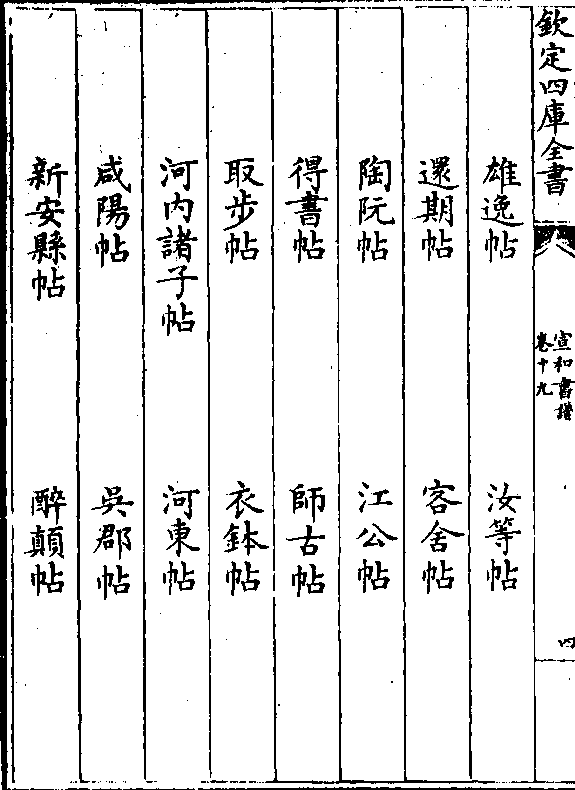 欽定四庫全書
宣和書譜
卷十九
四
雄逸帖 汝等帖
還期帖 客舍帖
陶阮帖 江公帖
得書帖 師古帖
取步帖 衣鉢帖
河内諸子帖 河東帖
咸陽帖 吳郡帖
新安縣帖 醉顛帖